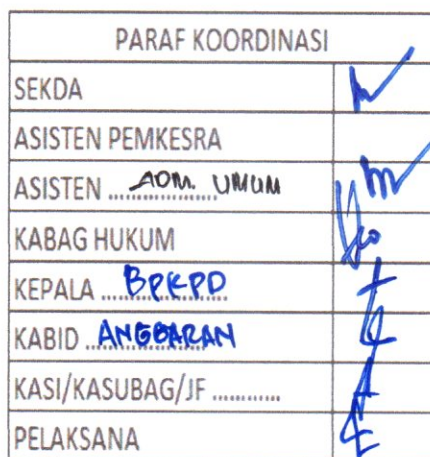 PARAF KOORDINASI
SEKDA
ASISTEN PEMKESRA
ASISTEN ADM. UMUM
KABAG HUKUM
KEPALA BPKPD
KABID ANGGARAN
KASI/KASUBAG/JF ............
PELAKSANA